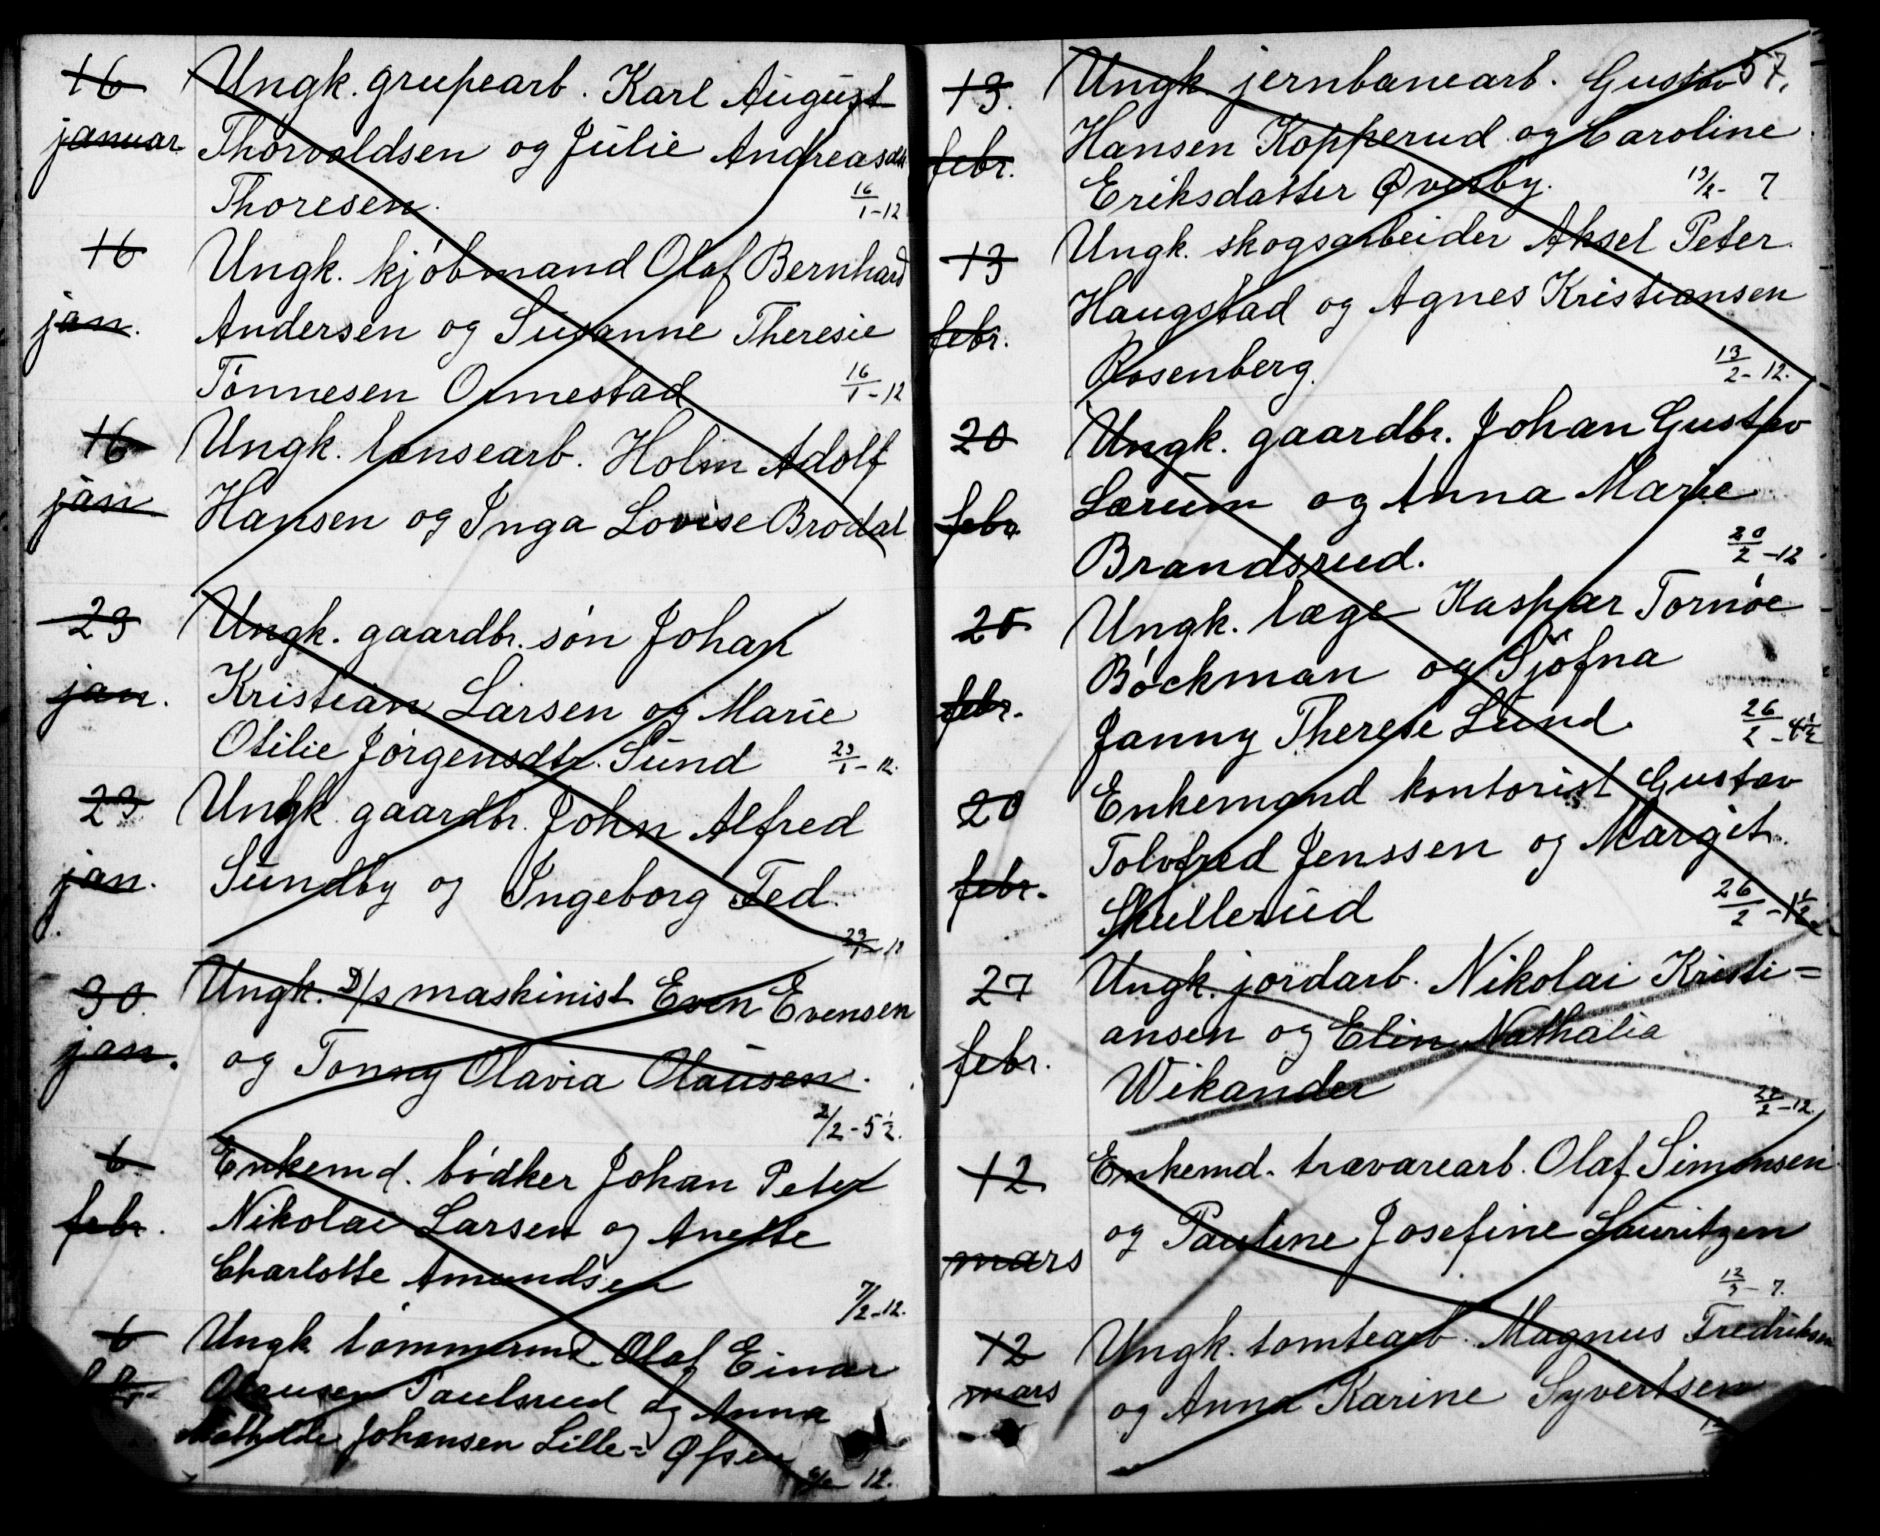 16 Ungk. grupearb. Karl August
januar Thorvaldsen og Julie Andreasdtr
Thoresen. 16/1-12
16 Ungk. kjøbmand Olaf Bernhard
jan. Andersen og Susanne Theresie
Tønnesen Ormestad 16/1-12
16 Ungk. lænsearb. Holm Adolf
jan Hansen og Inga Lovise Brodal
23 Ungk. gaardbr. søn Johan
jan. Kristian Larsen og Marie
Otilie Jørgensdtr. Sund 23/1-12.
23 Ungk gaardbr. John Alfred
jan. Sundby og Ingeborg Ted.
23/1-12
30. Ungk. D/s maskinist Even Evensen
jan. og Tonny Olavia Olausen.
2/2-5 1/2.
6 Enkemd. bødker Johan Peter
febr. Nikolai Larsen og Anette
Charlotte Amundsen 7/2-12.
6 Ungk tømmermd. Olaf Einar
Olausen Paulsrud og Anna
Mathilde Johansen Lille-Øfsen
6/2 12.
57.
13. Ungk jernbanearb. Gustav
febr. Hansen Kopperud og Caroline
Eriksdatter Øverby. 13/2- 7
13 Ungk. skogsarbeider Aksel Peter
febr. Haugstad og Agnes Kristiansen
Rosenberg. 13/2-12.
20 Ungk. gaardbr. Johan Gustav
febr Lærum og Anna Marie
Brandsrud. 20/2-12
Ungk. læge Kaspar Tornøe
febr. Bøckman og Sjøfna
Janny Therese Lund. 26/2-4 1/2
20 Enkemand kontorist Gustav
febr. Tolvfred Jenssen og Margit
Skullerud 26/2-1 1/2
27 Ungk. jordarb. Nikolai Kristi=
febr. ansen og Elin Nathalia
Wikander 27/2-12.
12 Enkemd. trævarearb. Olaf Simonsen
mars og Pauline Josefine Lauritzen
12/3-7.
12 Ungk. tomtearb. Magnus Fredriksen
mars og Anna Karine Syvertsen